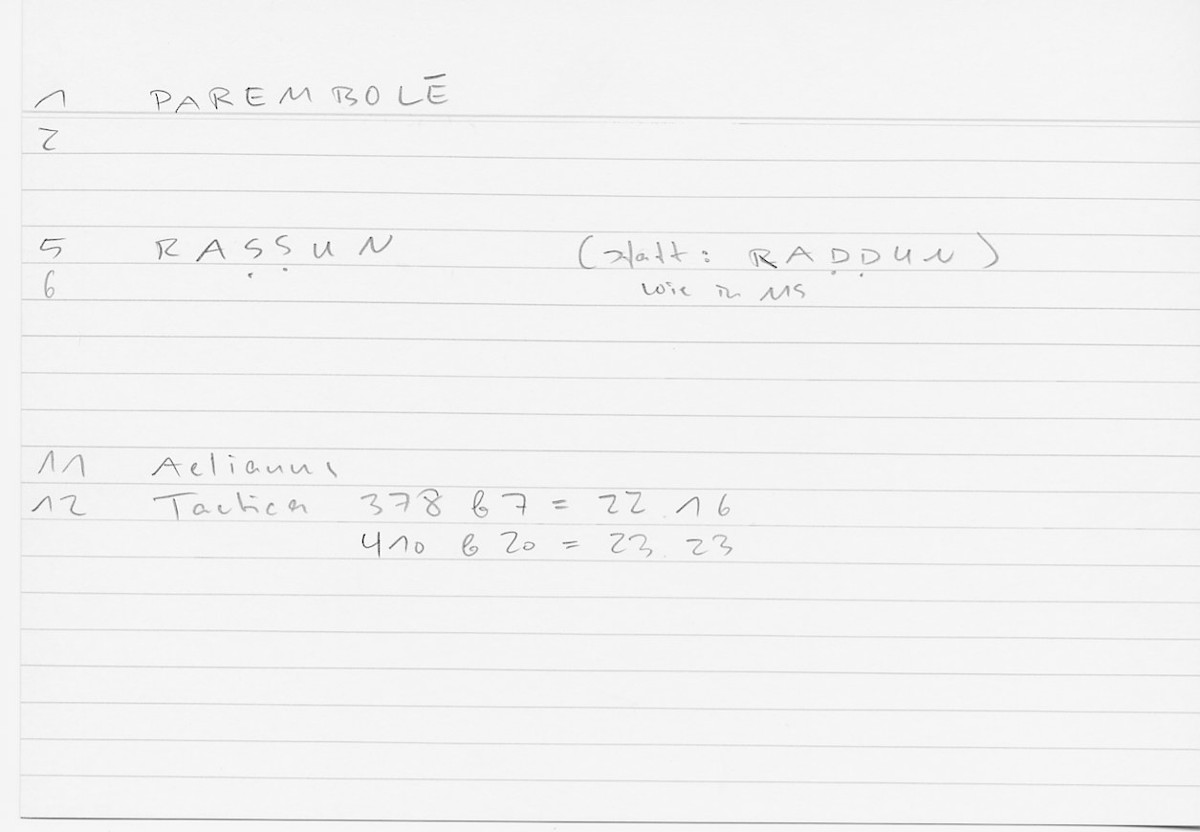 1 PAREMBOLĒ
2
5 RAṢṢUN (statt: RAḌḌUN)
6 wie in MS
11 Aelianus
12 Tactica 378 b 7 = 22.16
410 b 20 = 23.23